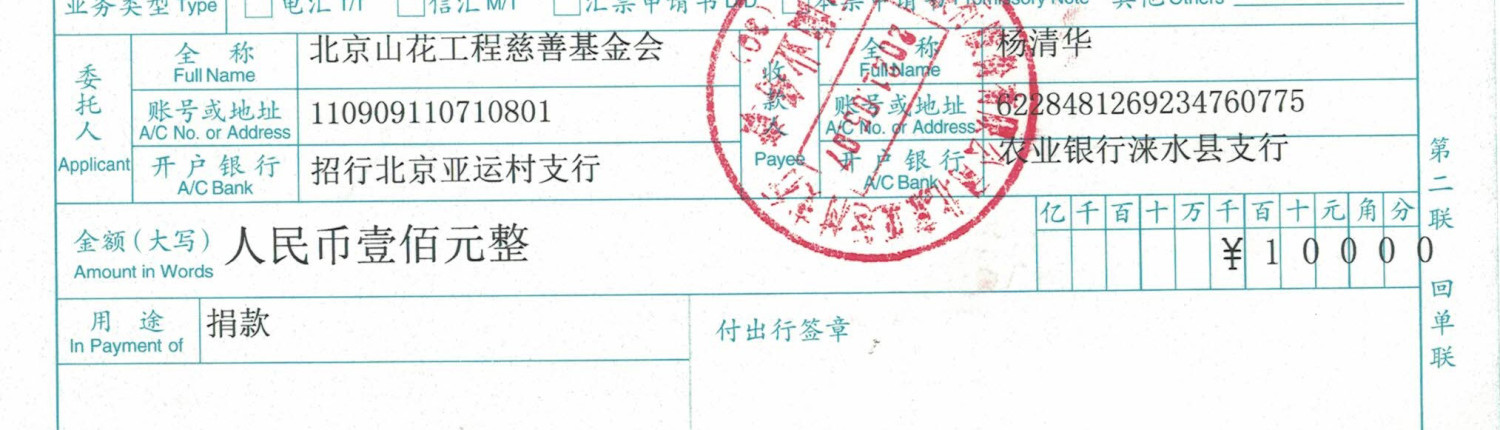 业务类型 Type 电汇 T/T 信汇 M/T 汇票申请书 D/D 本票申请书 Promissory Note 其他 Others
委托人 Applicant
全称 Full Name 北京山花工程慈善基金会
账号或地址 A/C No. or Address 110909110710801
开户银行 A/C Bank 招行北京亚运村支行
收款人 Payee
全称 Full Name 杨清华
账号或地址 A/C No. or Address 6228481269234760775
开户银行 A/C Bank 农业银行涞水县支行
金额(大写) Amount in Words 人民币壹佰元整
亿千百十万千百十元角分
¥10000
用途 In Payment of 捐款
付出行签章
第二联 回单联